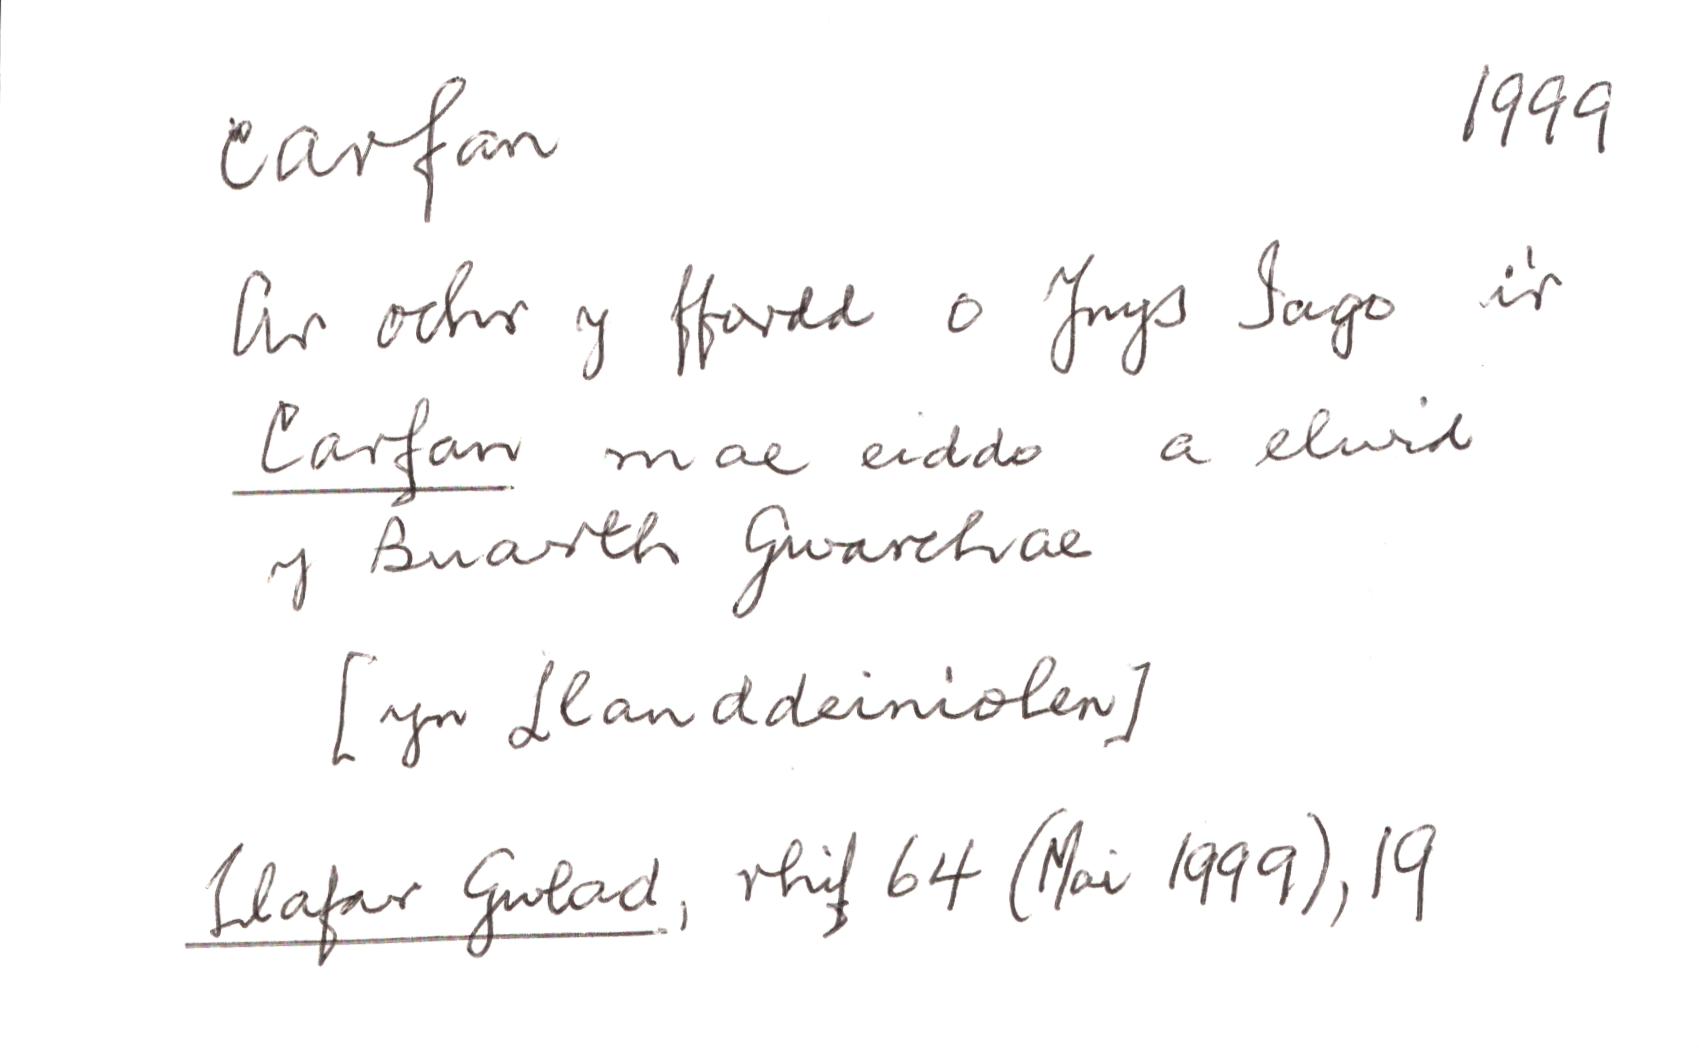 carfan 1999
Ar ochr y ffordd o Ynys Iago i'r
Carfan mae eiddo a elwid
y Buarth Gwarchae
[yn Llanddeiniolen]
Llafar Gwlad, rhif 64 (Mai 1999), 19